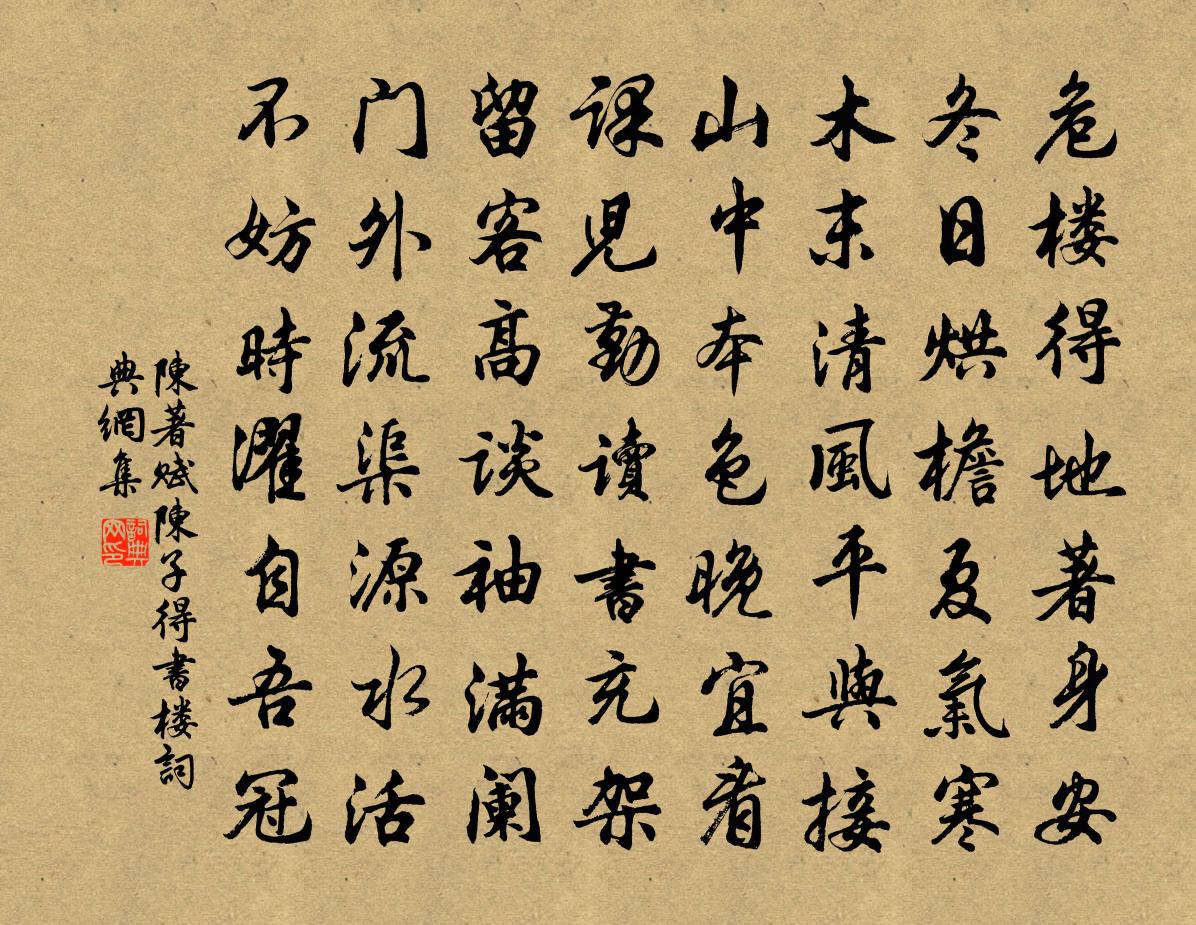 危楼得地著身安
冬日烘檐夏氣寒
木末清風平與接
山中本色晚宜看
課児勤讀書充架
留客高談袖满阑
门外流渠源水活
不妨時濯自吾冠
陳著赋陳子得書楼詞
典網集
詞典
网印